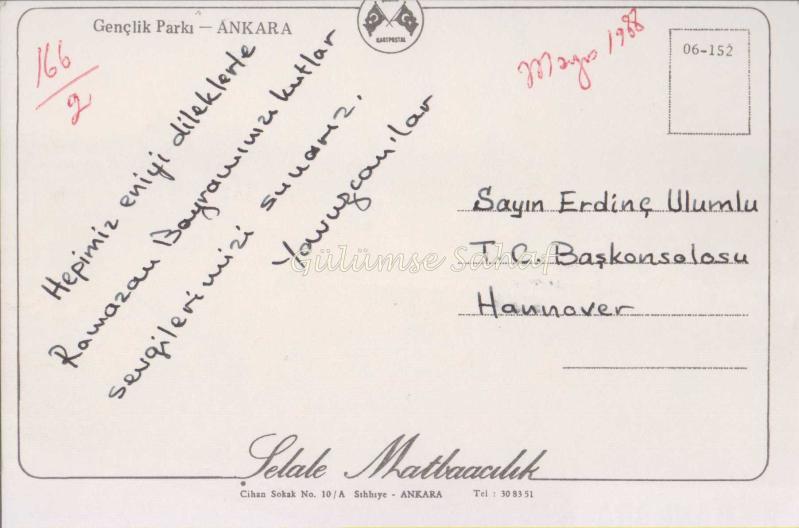 Gençlik Parkı — ANKARA
KARTPOSTAL
166
2
Mayıs 1988
06-152
Hepimiz eniyi dileklerle
Ramazan Bayramınızı kutlar
sevgilerimizi sunarız.
Yavuzcanılar
Sayın Erdinç Ulumlu
T.C. Başkonsolosu
Hannover
Gülümse Sahaf
Şelale Matbaacılık
Cihan Sokak No. 10/A Sıhhıye - ANKARA Tel : 30 83 51